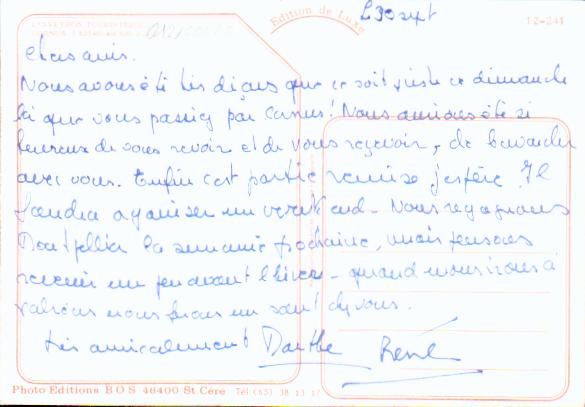 L'AVEYRON TOURISTIQUE
Edition de Luxe
12-241
le 30 sept
Chers amis.
Nous avons été très déçus que ce soit juste ce dimanche
là que vous passiez par Cornus! Nous aurions été si
heureux de vous revoir et de vous recevoir, de bavarder
avec vous. Enfin c'est partie remise j'espère. Il
faudra organiser un week end - Nous regagnons
Montpellier la semaine prochaine, mais pensons
revenir un peu avant l'hiver - quand nous irons à
nous ferons un saut chez vous.
très amicalement Marthe René
Photo Editions BOS 46400 St. Céré Tél. (65) 38 13 17